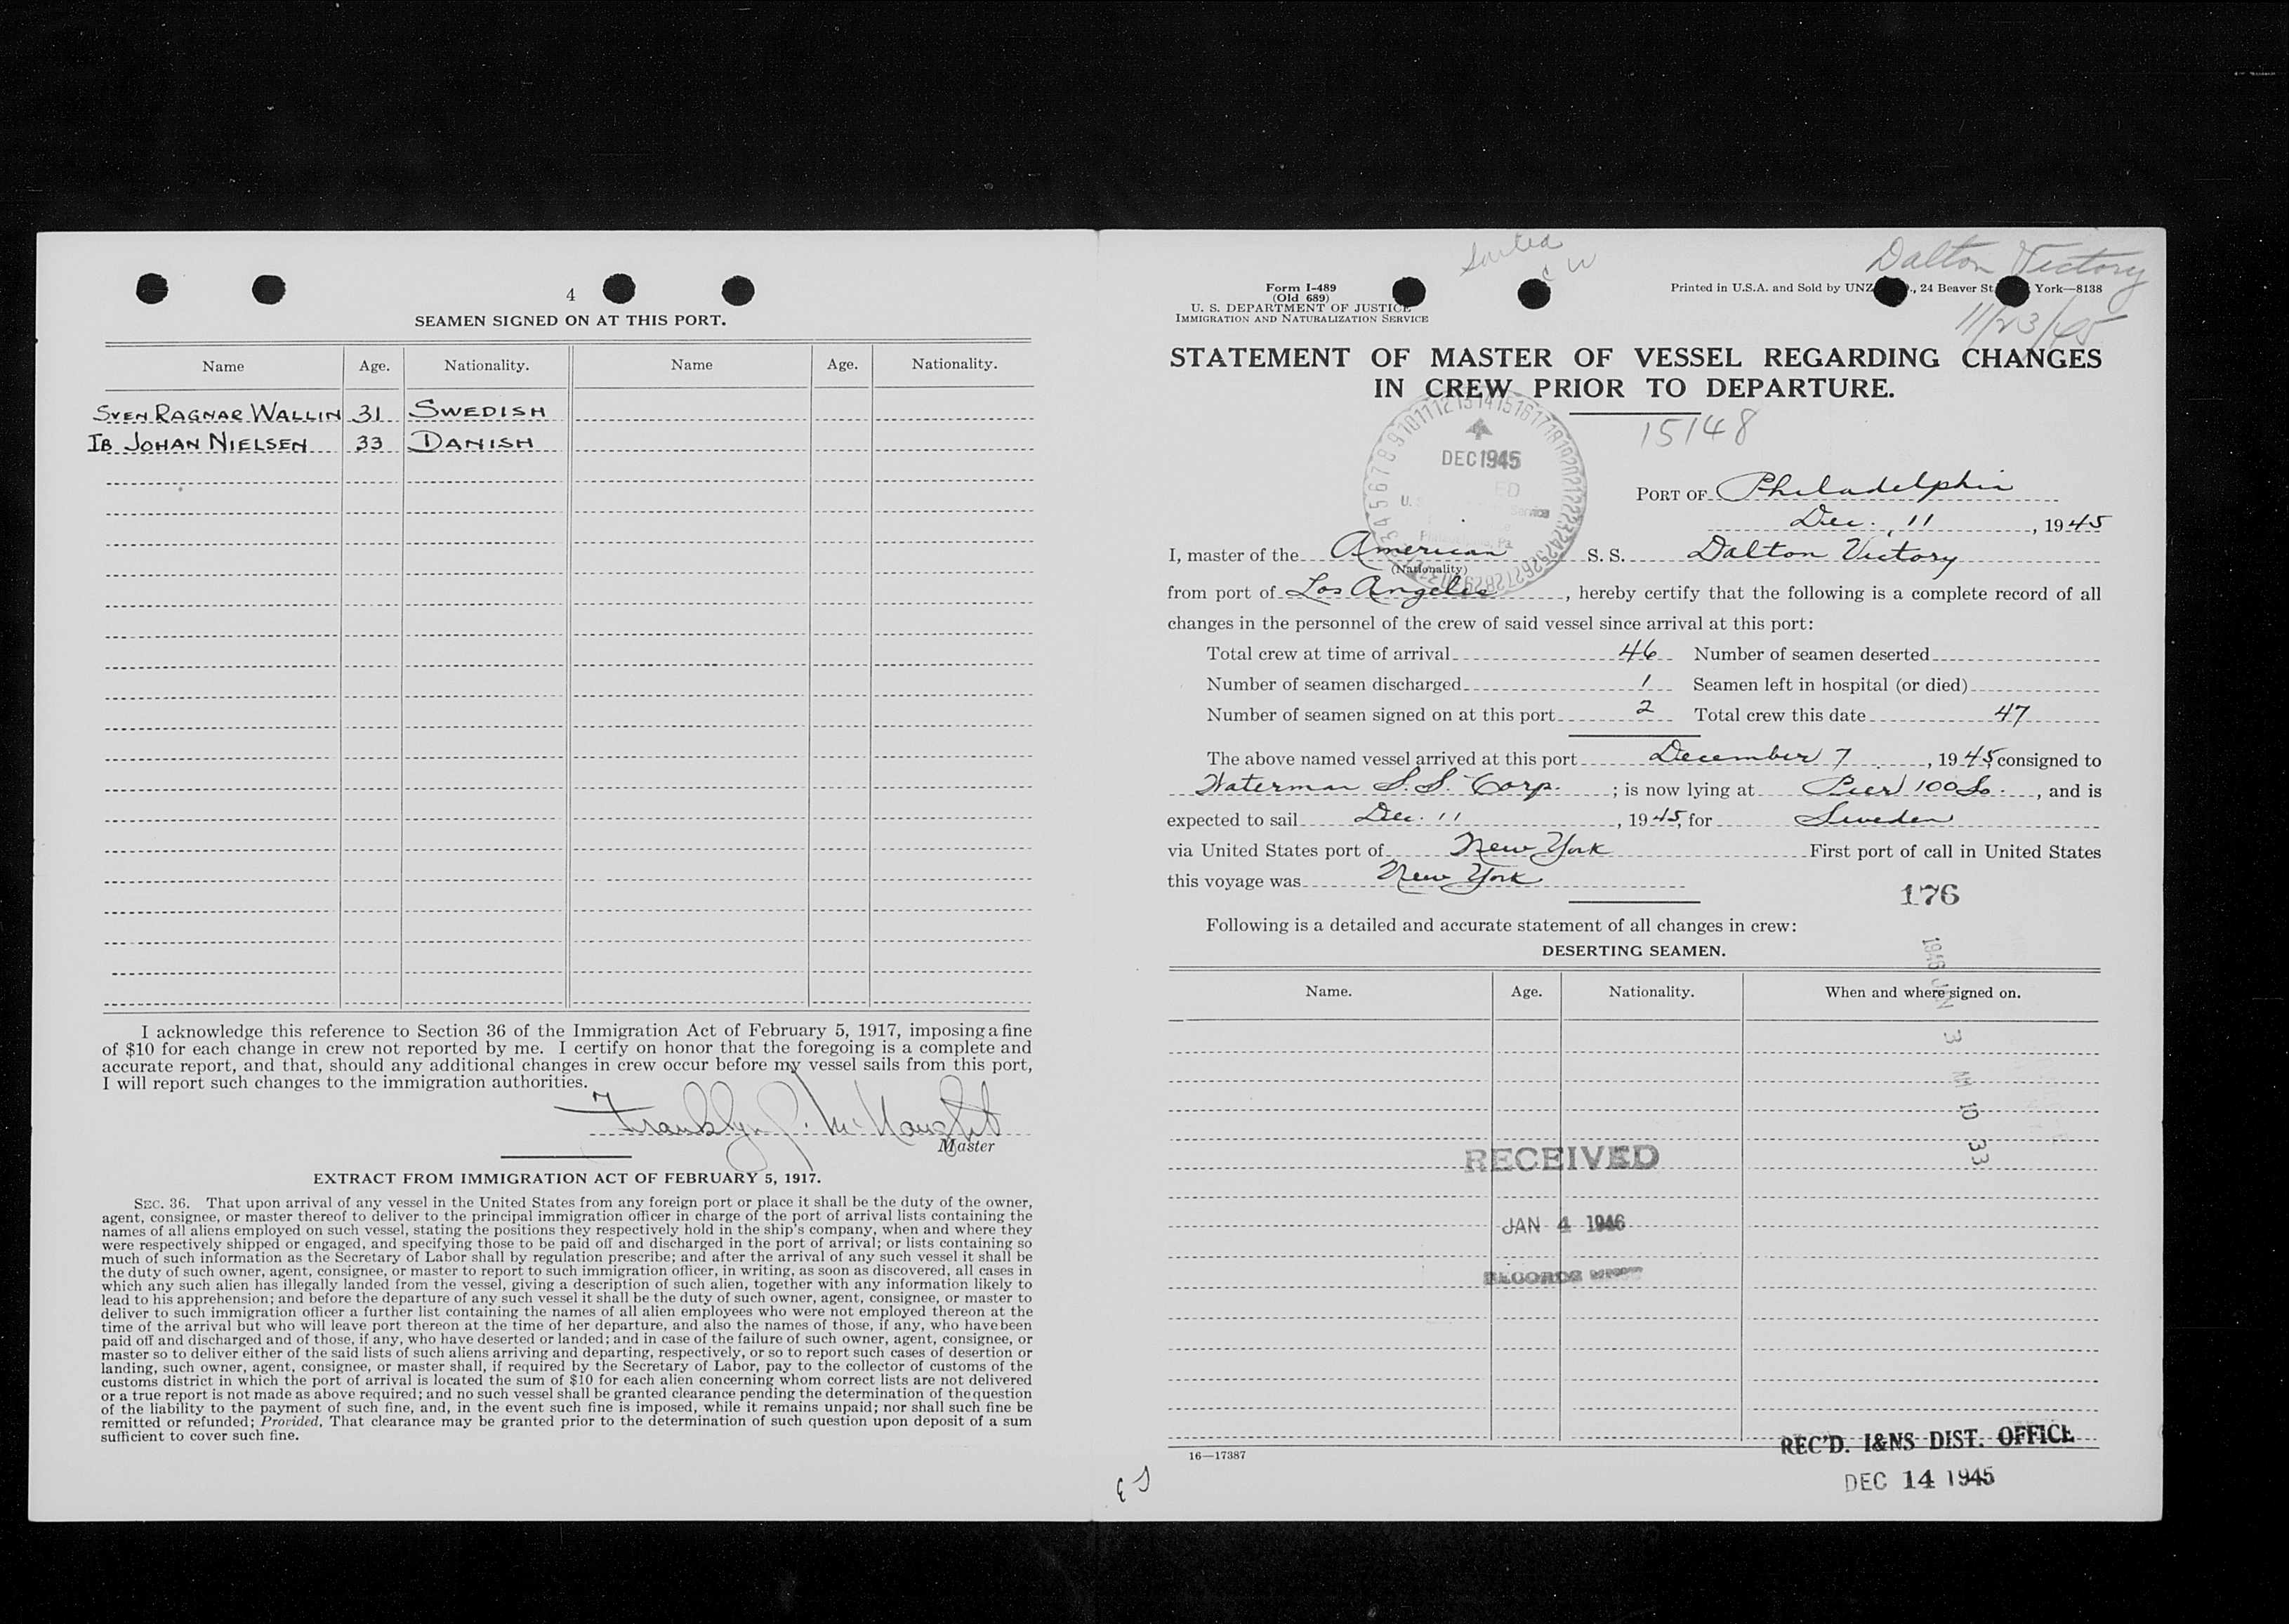 4
SEAMEN SIGNED ON AT THIS PORT.
Name Age. Nationality. Name Age. Nationality.
SVEN RAGNAR WALLIN 31 SWEDISH
IB JOHAN NIELSEN 33 DANISH
I acknowledge this reference to Section 36 of the Immigration Act of February 5, 1917, imposing a fine
of $10 for each change in crew not reported by me. I certify on honor that the foregoing is a complete and
accurate report, and that, should any additional changes in crew occur before my vessel sails from this port,
I will report such changes to the immigration authorities.
Franklyn J. McNaught
Master
EXTRACT FROM IMMIGRATION ACT OF FEBRUARY 5, 1917.
SEC. 36. That upon arrival of any vessel in the United States from any foreign port or place it shall be the duty of the owner,
agent, consignee, or master thereof to deliver to the principal immigration officer in charge of the port of arrival lists containing the
names of all aliens employed on such vessel, stating the positions they respectively hold in the ship's company, when and where they
were respectively shipped or engaged, and specifying those to be paid off and discharged in the port of arrival; or lists containing so
much of such information as the Secretary of Labor shall by regulation prescribe; and after the arrival of any such vessel it shall be
the duty of such owner, agent, consignee, or master to report to such immigration officer, in writing, as soon as discovered, all cases in
which any such alien has illegally landed from the vessel, giving a description of such alien, together with any information likely to
lead to his apprehension; and before the departure of any such vessel it shall be the duty of such owner, agent, consignee, or master to
deliver to such immigration officer a further list containing the names of all alien employees who were not employed thereon at the
time of the arrival but who will leave port thereon at the time of her departure, and also the names of those, if any, who have been
paid off and discharged and of those, if any, who have deserted or landed; and in case of the failure of such owner, agent, consignee, or
master so to deliver either of the said lists of such aliens arriving and departing, respectively, or so to report such cases of desertion or
landing, such owner, agent, consignee, or master shall, if required by the Secretary of Labor, pay to the collector of customs of the
customs district in which the port of arrival is located the sum of $10 for each alien concerning whom correct lists are not delivered
or a true report is not made as above required; and no such vessel shall be granted clearance pending the determination of the question
of the liability to the payment of such fine, and, in the event such fine is imposed, while it remains unpaid; nor shall such fine be
remitted or refunded; Provided, That clearance may be granted prior to the determination of such question upon deposit of a sum
sufficient to cover such fine.
Dalton Victory
11/23/45
Form I-489
(Old 689)
U. S. DEPARTMENT OF JUSTICE
IMMIGRATION AND NATURALIZATION SERVICE
Printed in U.S.A. and Sold by UNZ ., 24 Beaver St. York—8138
STATEMENT OF MASTER OF VESSEL REGARDING CHANGES
IN CREW PRIOR TO DEPARTURE.
15148
DEC 1945
PORT OF Philadelphia
Dec. 11, 1945
I, master of the American S. S. Dalton Victory
(Nationality)
from port of Los Angeles, hereby certify that the following is a complete record of all
changes in the personnel of the crew of said vessel since arrival at this port:
Total crew at time of arrival 46 Number of seamen deserted
Number of seamen discharged 1 Seamen left in hospital (or died)
Number of seamen signed on at this port 2 Total crew this date 47
The above named vessel arrived at this port December 7, 1945, consigned to
Waterman S.S. Corp.; is now lying at Pier 100 So., and is
expected to sail Dec. 11, 1945, for Sweden
via United States port of New York First port of call in United States
this voyage was New York
176
Following is a detailed and accurate statement of all changes in crew:
DESERTING SEAMEN.
Name. Age. Nationality. When and where signed on.
1946 JAN 3 AM 10 33
RECEIVED
JAN 4 1946
RECORDS
REC'D. I&NS DIST. OFFICE
16—17387
DEC 14 1945